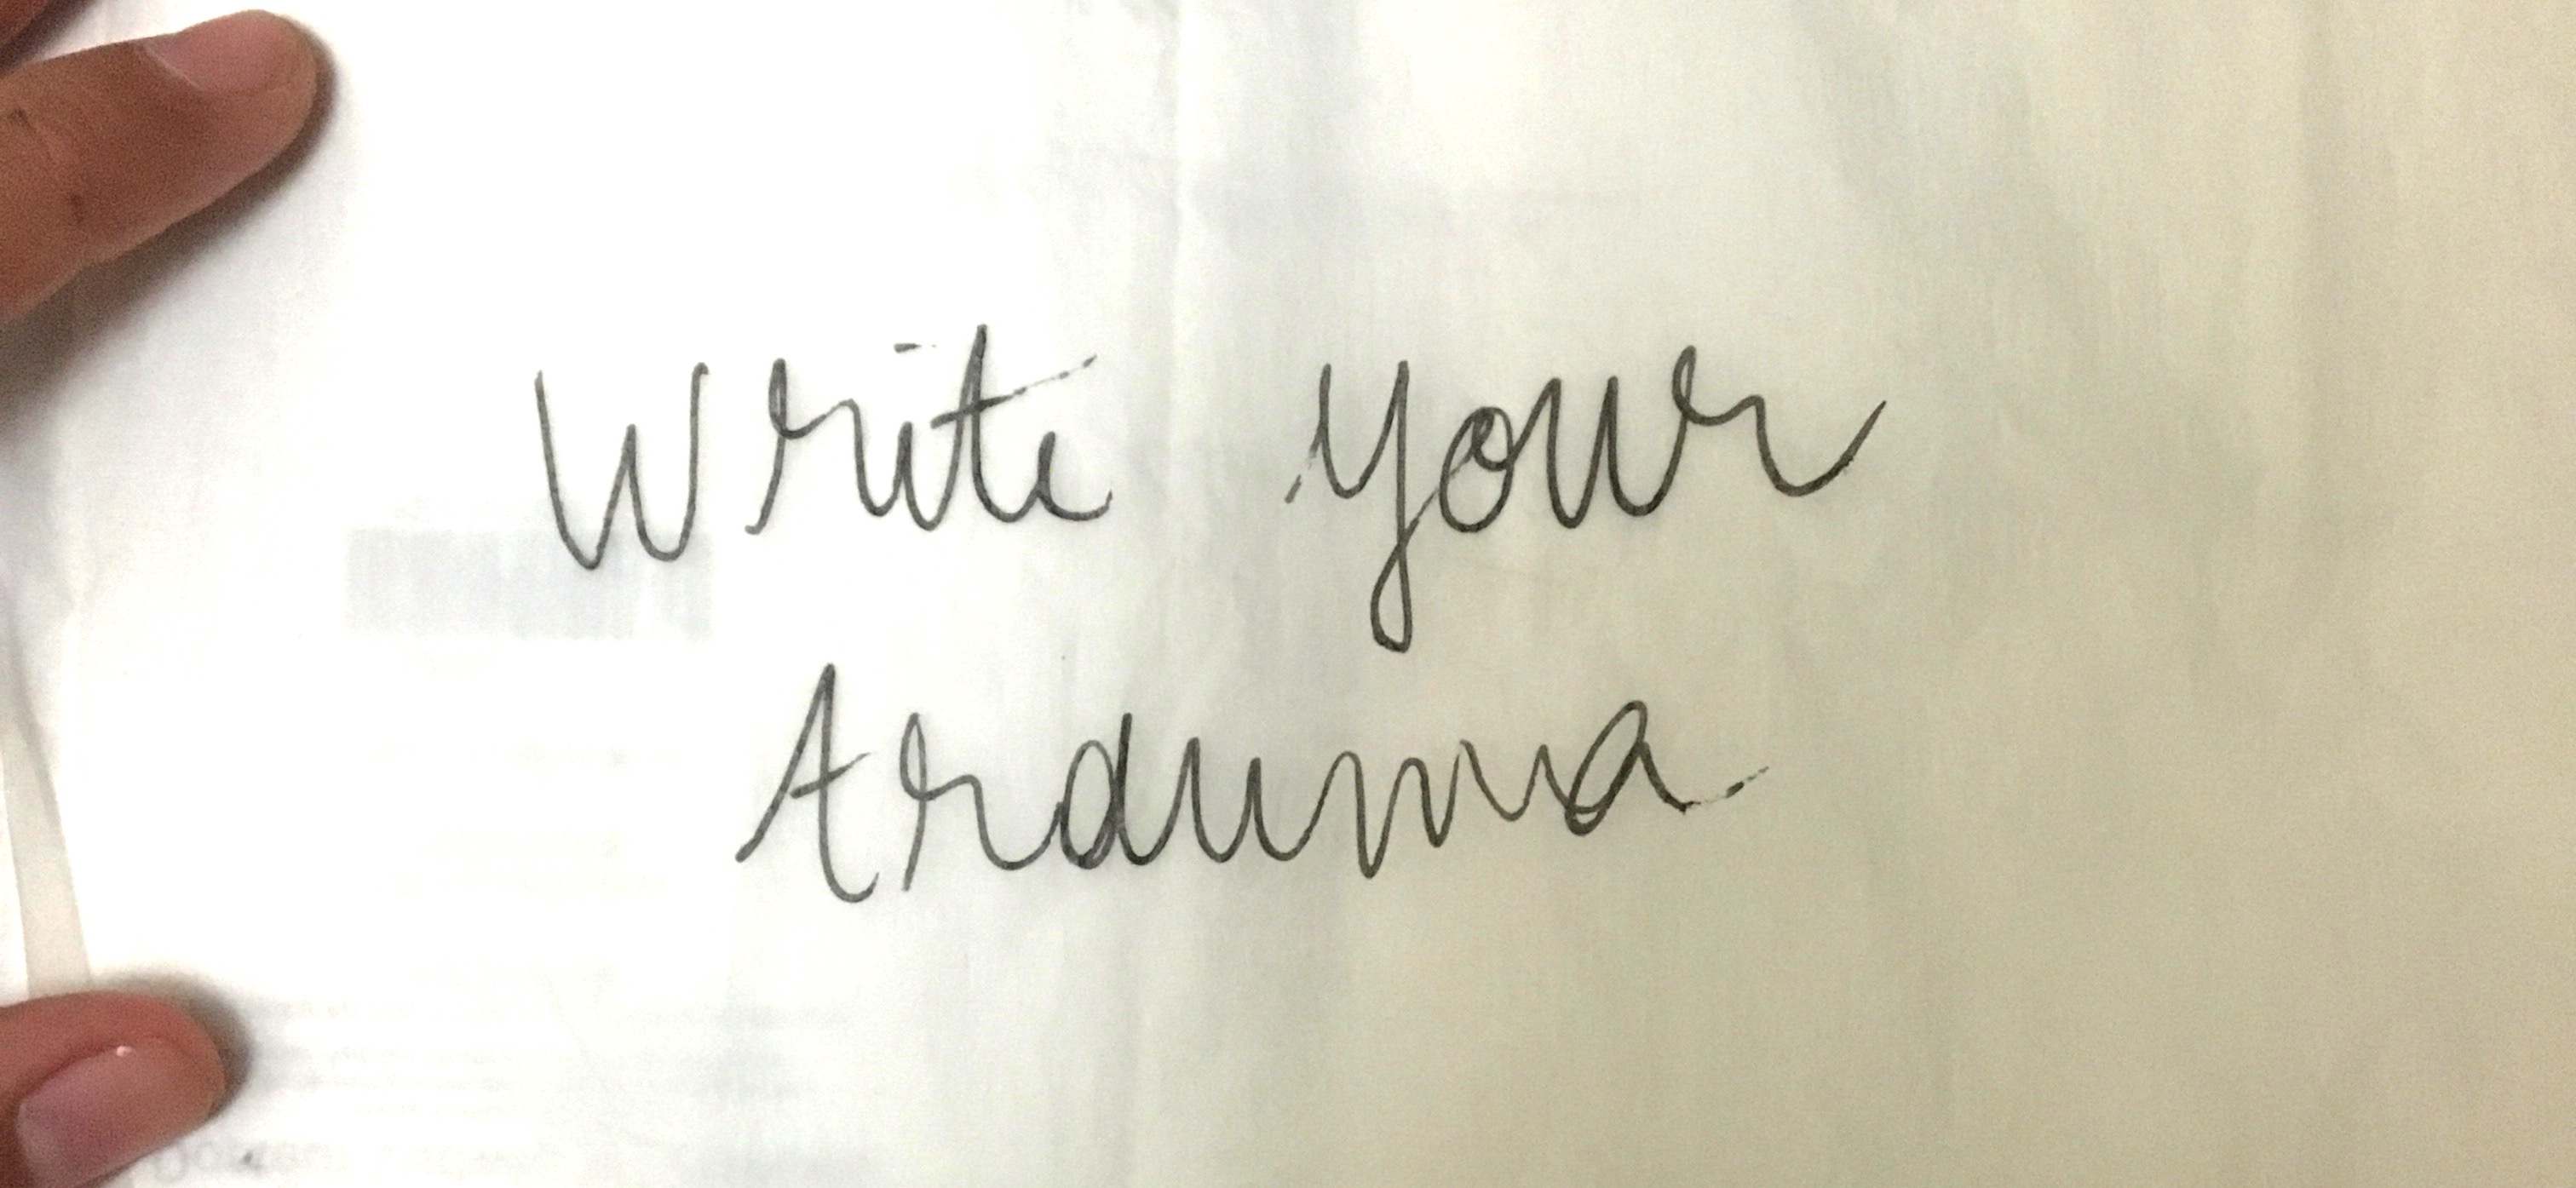 Write your
trauma